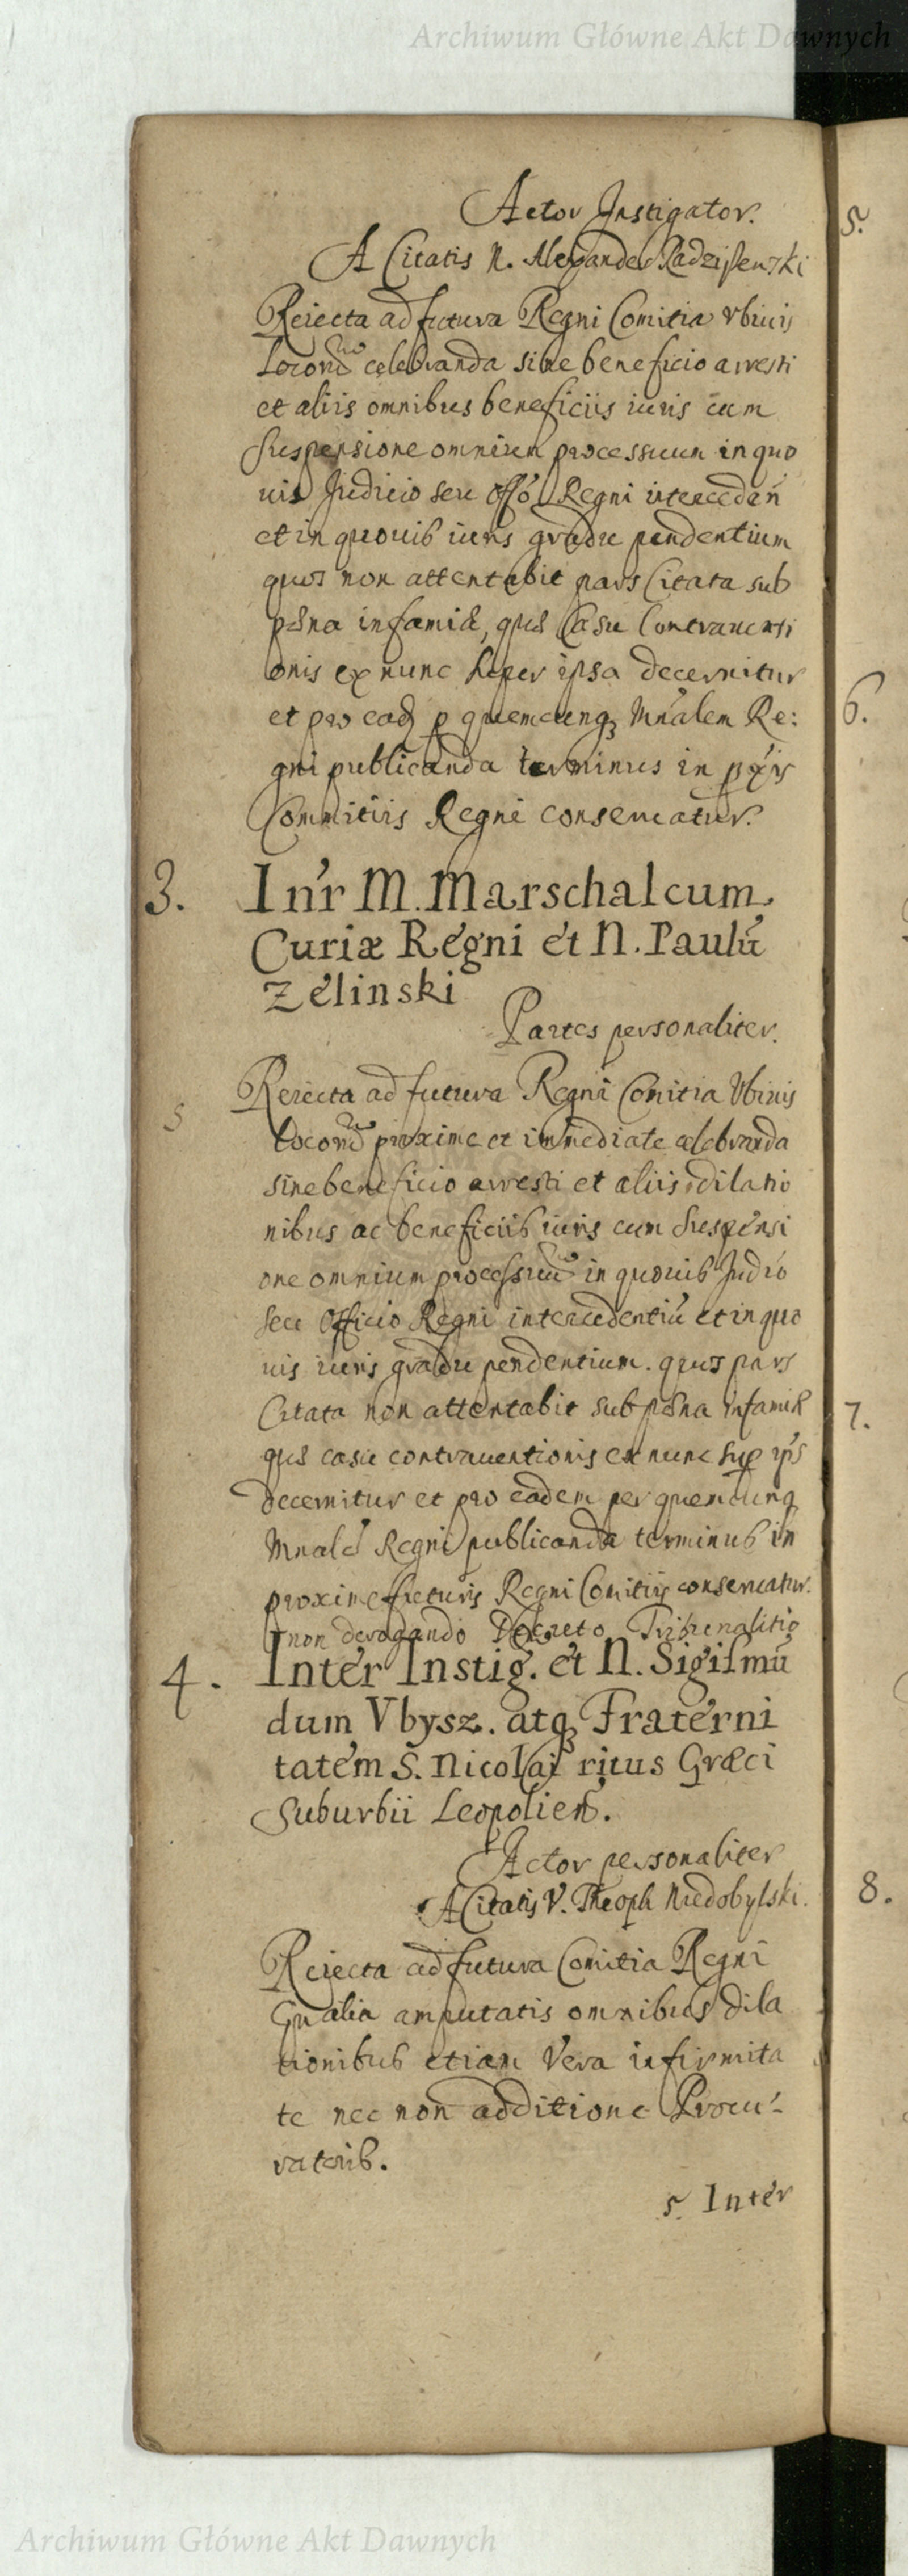 Archiwum Główne Akt Dawnych
Actor Instigator.
A Citatis N. Alexander Radziszewski
Reiecta ad futura Regni Comitia vbiuis
Locorũ celebranda sine beneficio arresti
et aliis omnibus beneficiis iuris cum
suspensione omnium processuum in quo
uis Judicio seu Offõ Regni intercedeñ
et in quouis iuris gradu pendentium
quos non attentabit pars Citata sub
pæna infamiæ, quæ Casu Contrauenti
onis ex nunc super ipsa decernitur
et pro eadẽ p quemcunq Mñalem Re:
gni publicanda terminus in pxis
Commitiis Regni conseruatur.
3. Inr̃ M. Marschalcum
Curiæ Regni et N. Paulũ
Zelinski
Partes personaliter.
Reiecta ad futura Regni Comitia Vbiuis
5
Locorũ proxime et immediate celebranda
sine beneficio arresti et aliis dilatio
nibus ac beneficiis iuris cum suspensi
one omnium processuũ in quouis Judio
seu Officio Regni intercedentiũ et in quo
uis iuris gradu pendentium. quos pars
Citata non attentabit sub pæna infamiæ
quæ casu contrauentionis ex nunc sup ips
decernitur et pro eadem per quemcunq
Mnalẽ Regni publicanda terminus in
proxime futuris Regni Comitiis conseruatur.
non derogando Decreto Tribunalitio
4. Inter Instig. et N. Sigismũ
dum Vbysz. atq Fraterni
tatem S. Nicolai ritus Græci
Suburbii Leopolieñ.
Actor personaliter
A Citatis V. Theoph Niedobylski.
Reiecta ad futura Comitia Regni
Gñalia amputatis omnibus dila
tionibus etiam Vera infirmita
te nec non additione Procu-
ratoris.
5. Inter
5.
6.
7.
8.
Archiwum Główne Akt Dawnych